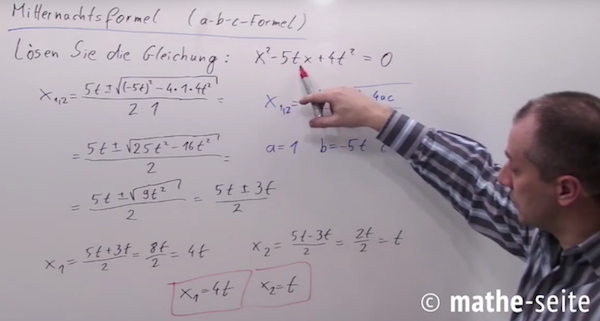 Mitternachtsformel (a-b-c-Formel)
Lösen Sie die Gleichung: x² - 5tx + 4t² = 0
x₁,₂ = (5t ± √((-5t)² - 4·1·4t²)) / (2·1) =
x₁,₂ = 4ac
= (5t ± √(25t² - 16t²)) / 2 =
a = 1 b = -5t
= (5t ± √(9t²)) / 2 = (5t ± 3t) / 2
x₁ = (5t + 3t) / 2 = 8t / 2 = 4t x₂ = (5t - 3t) / 2 = 2t / 2 = t
x₁ = 4t x₂ = t
© mathe-seite